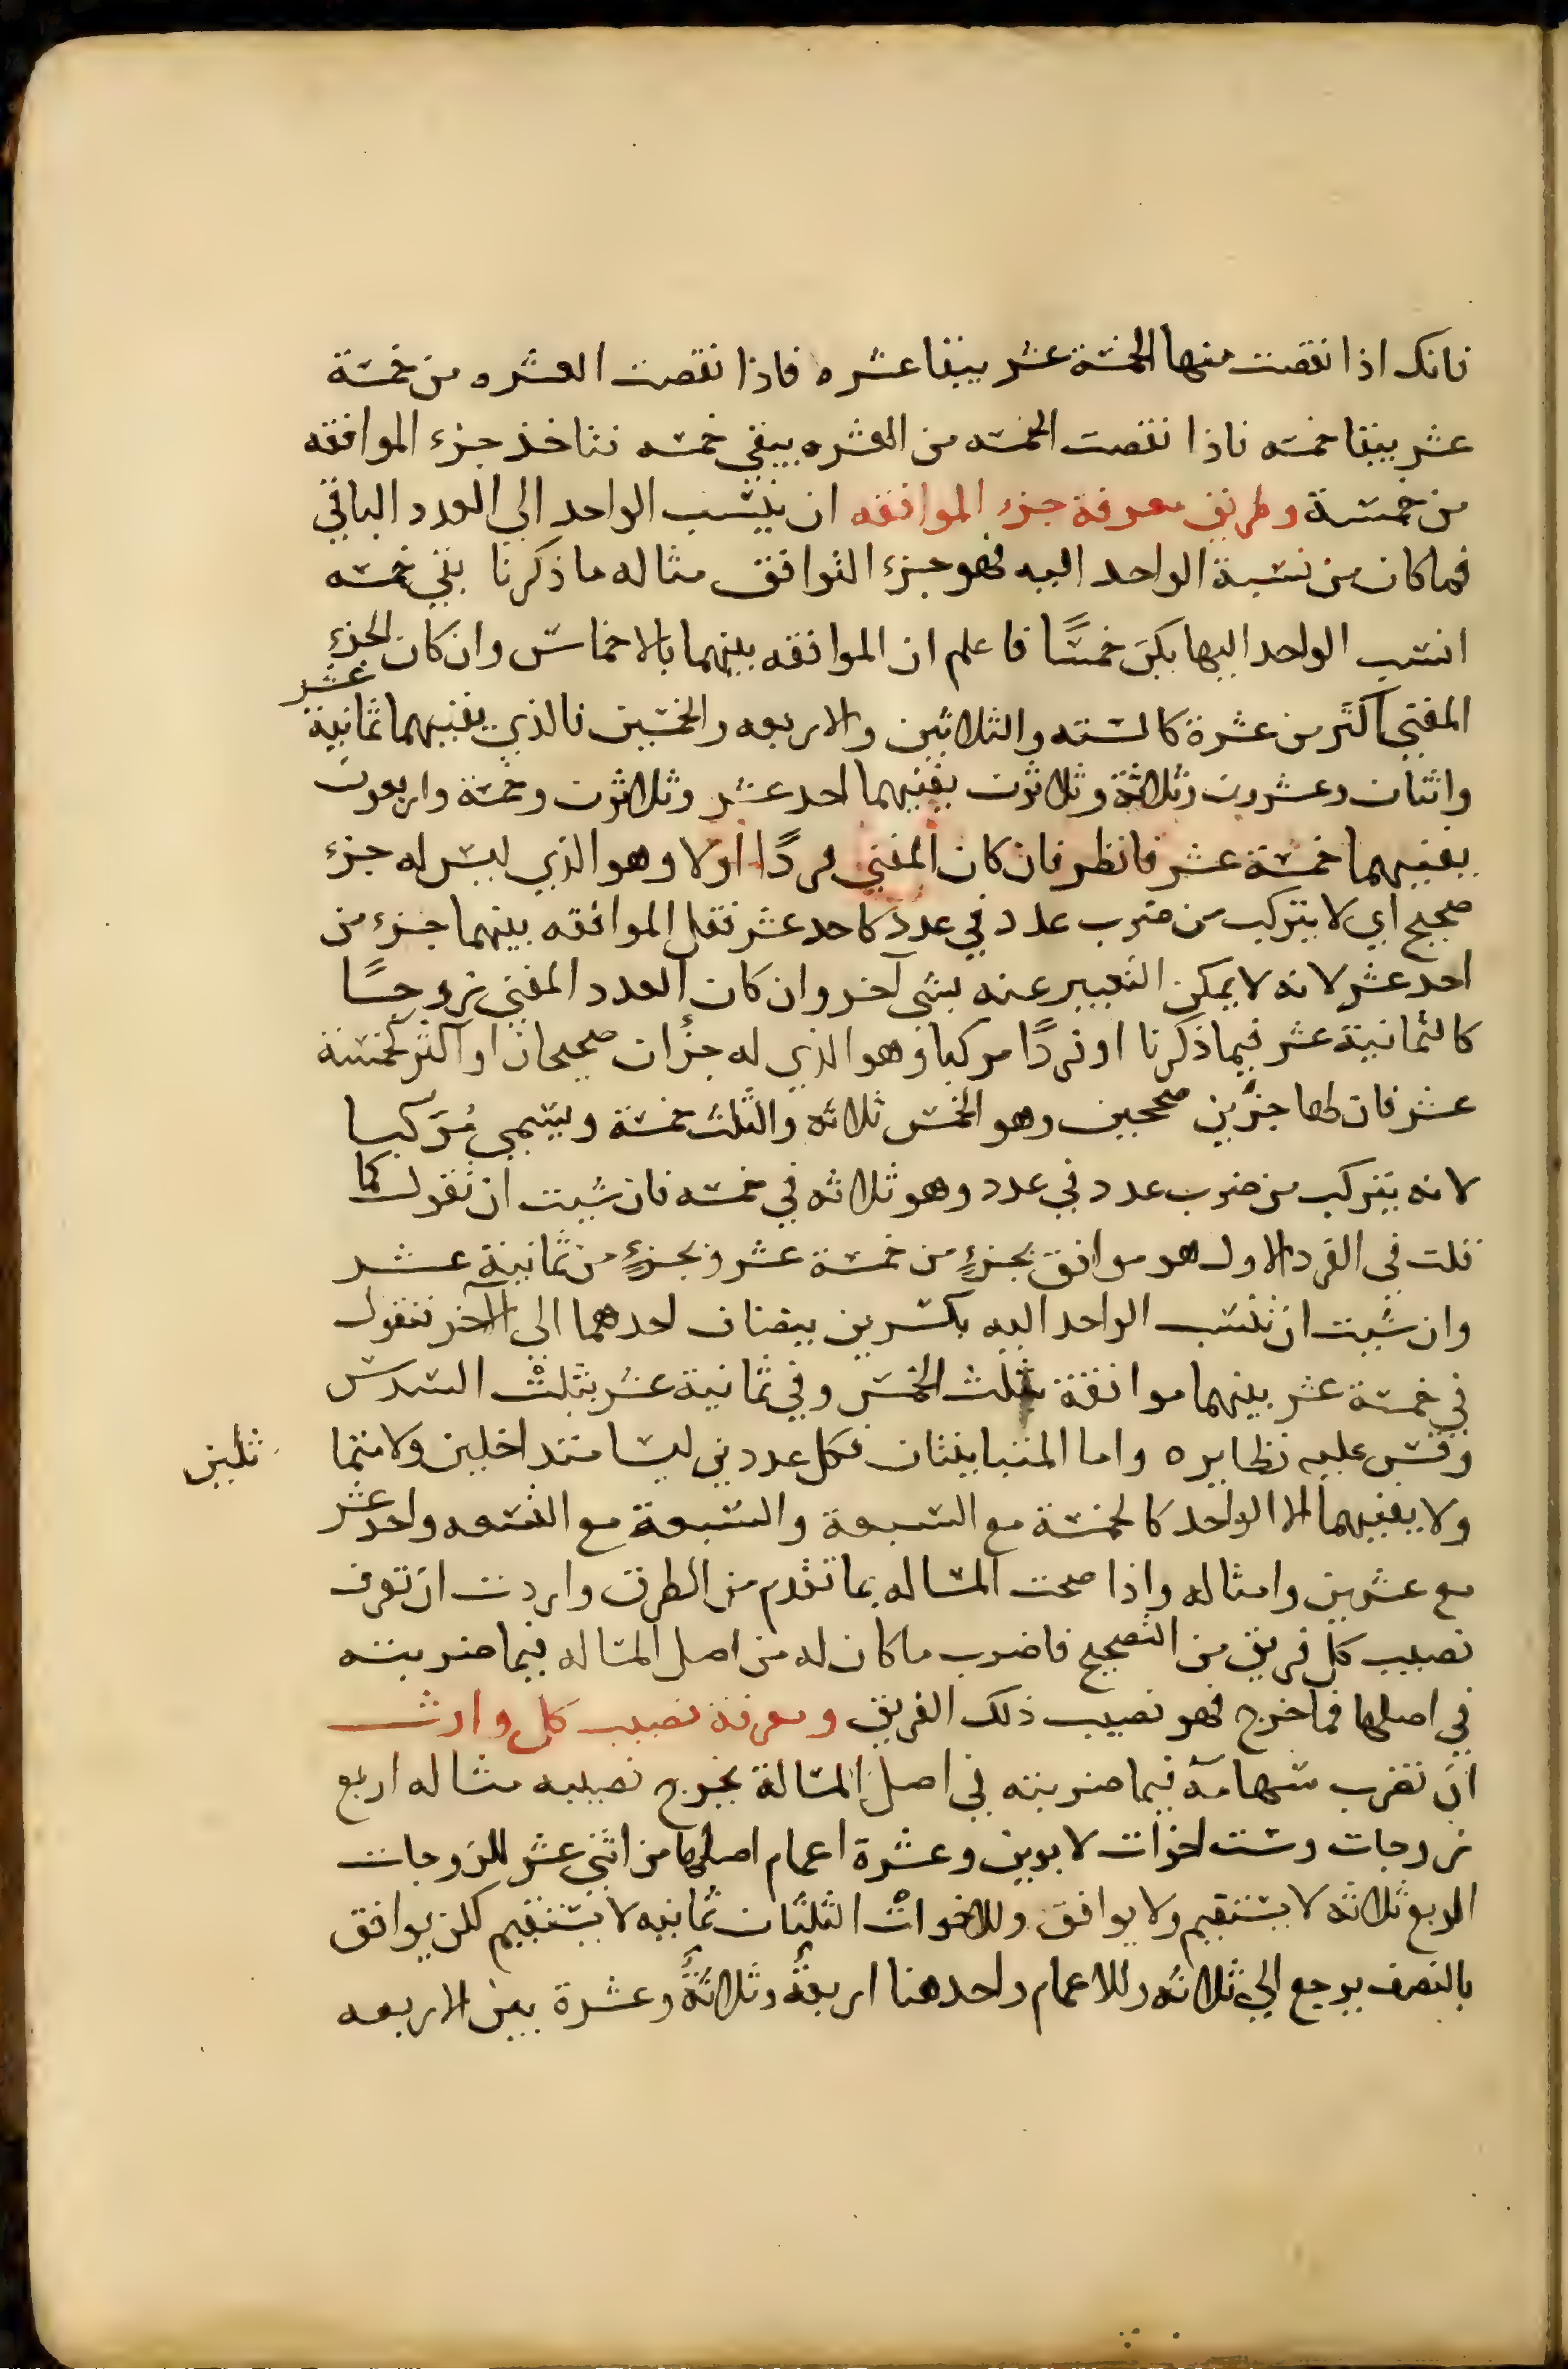 فانك اذا نقصت منها الخمسة عشر يبقا عشره فاذا نقصت العشره من خمسة
عشر يبقا خمسه فاذا نقصت الخمسه من العشره يبقي خمسه فتاخذ جزء الموافقه
من خمسة وطريق معرفة جزء الموافقه ان ينسب الواحد الي العدد الباقي
فما كان من نسبة الواحد اليه فهو جزء التوافق مثاله ما ذكرنا بقي خمسه
انسب الواحد اليها يكن خمسًا فاعلم ان الموافقه بينهما بالاخماس وان كان الجزء
المفني اكثر من عشرة كالسته والثلاثين والاربعه والخمسين فالذي يفنيهما ثمانية عشر
واثنان وعشرون وثلاثة وثلاثون يفنيهما احد عشر وثلاثون وخمسة واربعون
يفنيهما خمسة عشر فانظر فان كان المفني فردًا اولا وهو الذي ليس له جزء
صحيح اي لا يتركب من ضرب عدد في عدد كاحد عشر فقل الموافقه بينهما جزء من
احد عشر لانه لا يمكن التعبير عنه بشي آخر وان كان العدد المفني زوجًا
كالثمانية عشر فيما ذكرنا او فردًا مركبا وهو الذي له جزأن صحيحان او اكثر كخمسة
عشر فان لها جزأين صحيحين وهو الخمس ثلاثه والثلث خمسة ويسمي مُركبا
لانه يتركب من ضرب عدد في عدد وهو ثلاثه في خمسه فان شيت ان تقول كما
قلت في الفرد الاول هو موافق بجزءٍ من خمسة عشر وبجزءٍ من ثمانية عشر
وان شيت ان تنسب الواحد اليه بكسرين يضاف احدهما الي الآخر فتقول
في خمسة عشر بينهما موافقة بثلث الخمس وفي ثمانية عشر بثلث السدس
وقس عليه نظايره واما المتباينتان فكل عددين ليسا متداخلين ولا متما ثلين
ولا يفنيهما الا الواحد كالخمسة مع السبعة والسبعة مع التسعه واحد عشر
مع عشرين وامثاله واذا صحت المساله بما تقدم من الطرق واردت ان تعرف
نصيب كل فريق من التصحيح فاضرب ما كان له من اصل المساله فيما ضربته
في اصلها فما خرج فهو نصيب ذلك الفريق ومعرفة نصيب كل وارث
ان تضرب سهامه فيما ضربته في اصل المسالة يخرج نصيبه مثاله اربع
زوجات وست اخوات لابوين وعشرة اعمام اصلها من اثني عشر للزوجات
الربع ثلاثه لا يستقيم ولا يوافق وللاخوات الثلثان ثمانيه لا يستقيم لكن يوافق
بالنصف يرجع الي ثلاثه وللاعمام واحد هنا اربعة وثلاثة وعشرة بين الاربعه